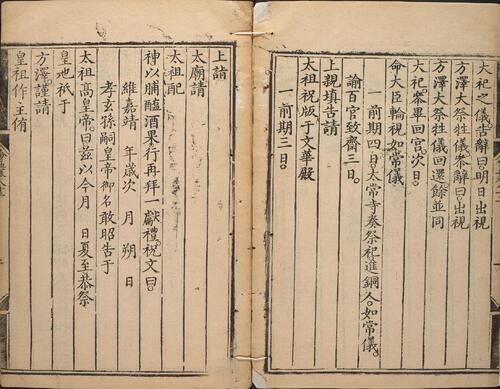 大祀之儀告辭曰明日出視
方澤大祭牲儀叅辭曰出視
方澤大祭牲儀回還餘並同
大祀叅畢回宮次日
命大臣輪視如常儀
一前期四日太常寺奏祭祀進銅人如常儀
諭百官致齋三日
上親填告請
太祖祝版于文華殿
一前期三日
上詣
太廟請
太祖配
神以脯醢酒果行再拜一獻禮祝文曰
維嘉靖 年歲次 月 朔 日
孝玄孫嗣皇帝御名敢昭告于
太祖高皇帝曰兹以今月 日夏至恭祭
皇地祇于
方澤謹請
皇祖作主侑